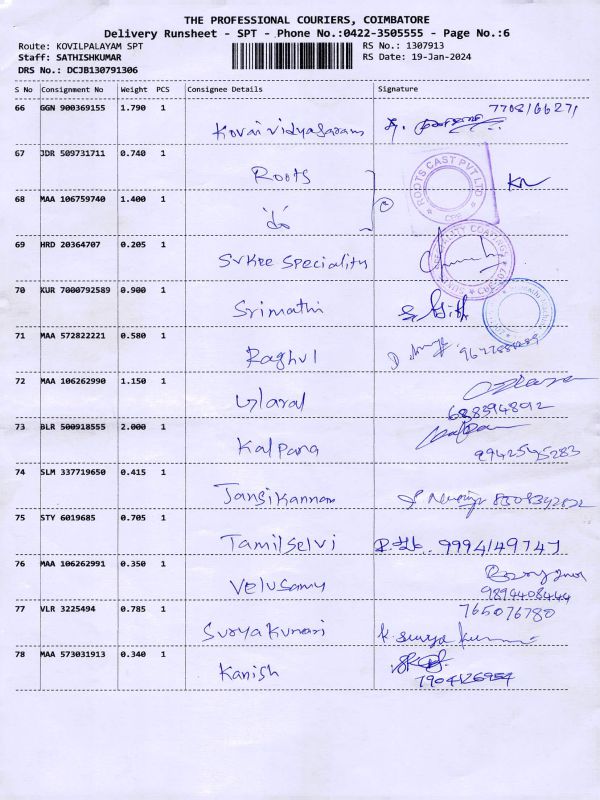 THE PROFESSIONAL COURIERS, COIMBATORE
Delivery Runsheet - SPT - Phone No.:0422-3505555 - Page No.:6
Route: KOVILPALAYAM SPT
RS No.: 1307913
Staff: SATHISHKUMAR
RS Date: 19-Jan-2024
DRS No.: DCJB130791306
S No Consignment No Weight PCS Consignee Details Signature
66 GGN 900369155 1.790 1 Kovai Vidyasaram
67 JDR 509731711 0.740 1 Roots
ROOTS CAST PVT LTD
68 MAA 106759740 1.400 1
69 HRD 20364707 0.205 1 Srkee Speciality
70 KUR 7000792589 0.900 1 Srimathi
71 MAA 572822221 0.580 1 Raghul
72 MAA 106262990 1.150 1
73 BLR 500918555 2.000 1 Kalpana
9942545283
74 SLM 337719650 0.415 1 Jansikannan
75 STY 6019685 0.705 1 Tamilselvi
76 MAA 106262991 0.350 1 Velusamy
9894408444
77 VLR 3225494 0.785 1 Suryakumari
765076780
K. Surya kumari
78 MAA 573031913 0.340 1 Kanish
7904126954